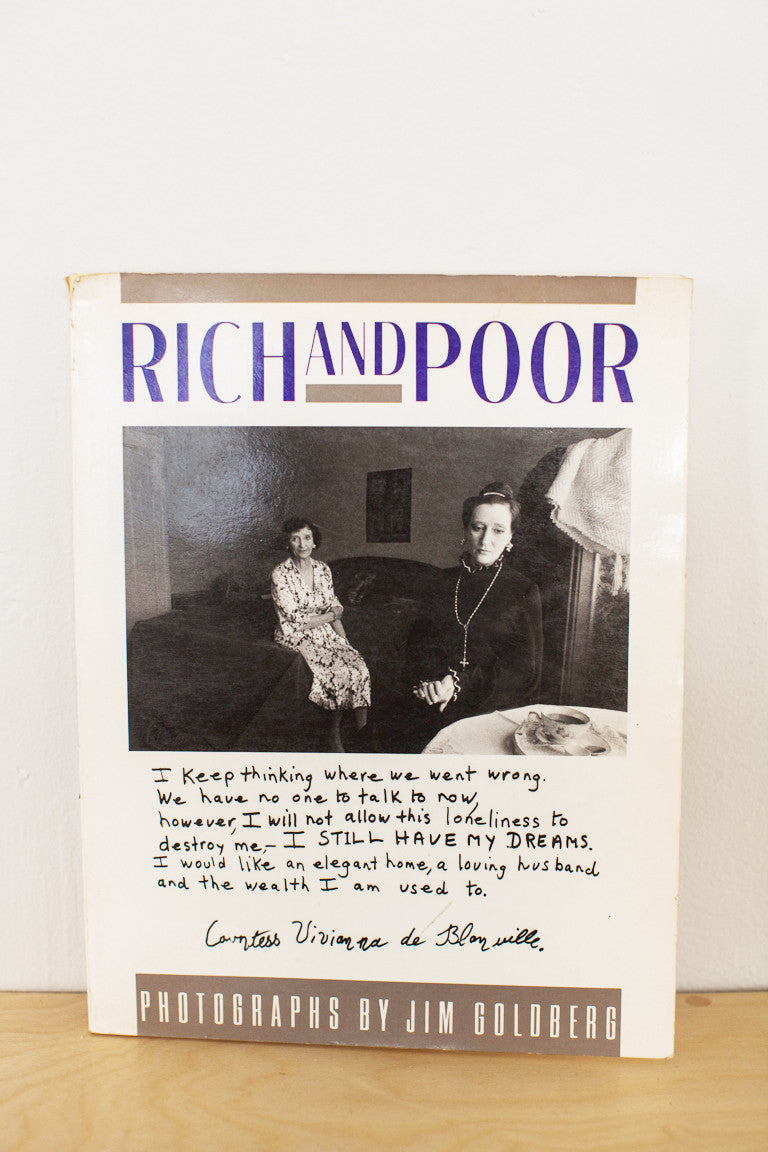 RICH AND POOR
I Keep thinking where we went wrong.
We have no one to talk to now,
however, I will not allow this loneliness to
destroy me,- I STILL HAVE MY DREAMS.
I would like an elegant home, a loving husband
and the wealth I am used to.
Countess Vivianna de Blonville.
PHOTOGRAPHS BY JIM GOLDBERG